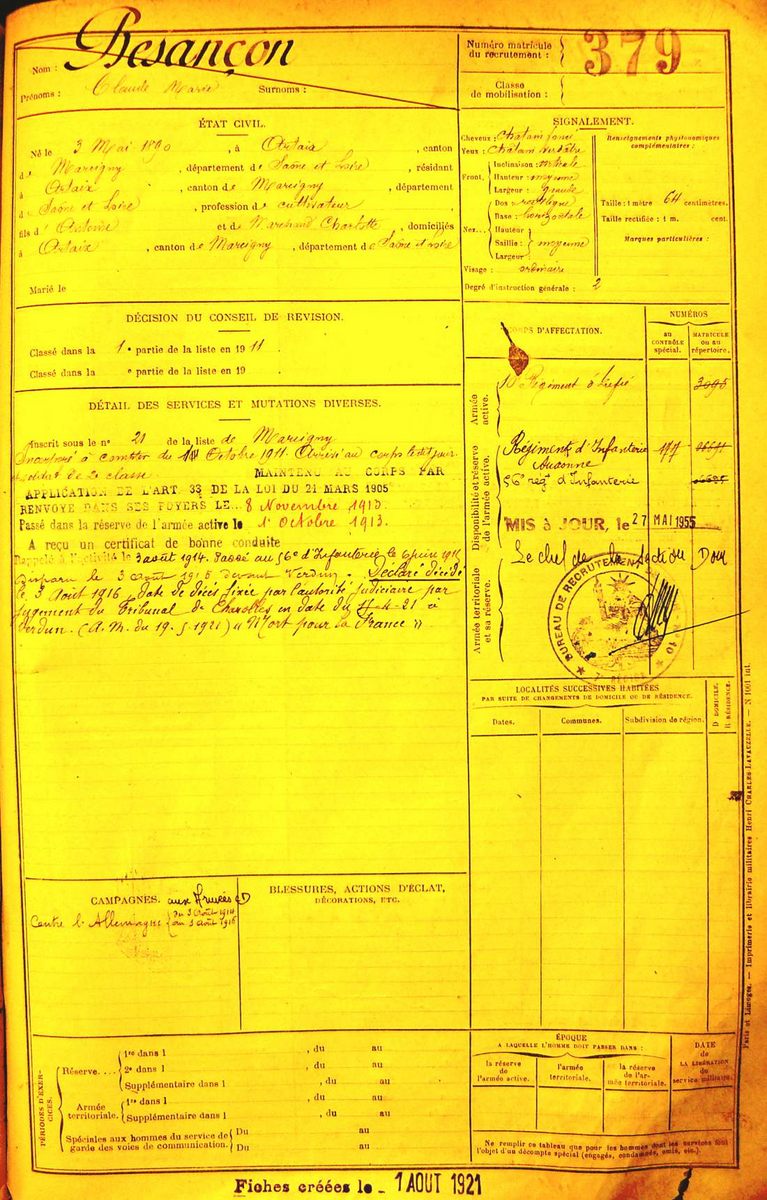 Nom : Besançon
Prénoms : Claude Marie Surnoms :
Numéro matricule du recrutement : 379
Classe de mobilisation :
ÉTAT CIVIL.
Né le 3 Mai 1890, à Artaix, canton
de Marcigny, département de Saône et Loire, résidant
à Artaix, canton de Marcigny, département
de Saône et Loire, profession de cultivateur
fils d'Antoine et de Marchand Charlotte, domiciliés
à Artaix, canton de Marcigny, département de Saône et Loire
Marié le
SIGNALEMENT.
Cheveux : Châtain foncé
Yeux : Châtain verdâtre
Front. Inclinaison : verticale
Hauteur : moyenne
Largeur : grande
Nez. Dos : rectiligne
Base : horizontale
Hauteur
Saillie : moyenne
Largeur
Visage : ordinaire
Degré d'instruction générale : 2
Renseignements physionomiques complémentaires :
Taille : 1 mètre 64 centimètres.
Taille rectifiée : 1 m. cent.
Marques particulières :
DÉCISION DU CONSEIL DE REVISION.
Classé dans la 1e partie de la liste en 1911.
Classé dans la e partie de la liste en 19 .
DÉTAIL DES SERVICES ET MUTATIONS DIVERSES.
Inscrit sous le no 21 de la liste de Marcigny
Incorporé à compter du Octobre 1911. Arrivé au corps le dit jour
soldat de 2e classe MAINTENU AU CORPS PAR
APPLICATION DE L'ART. 33 DE LA LOI DU 21 MARS 1905
RENVOYÉ DANS SES FOYERS LE 8 Novembre 1913.
Passé dans la réserve de l'armée active le 1er Octobre 1913.
A reçu un certificat de bonne conduite
Rappelé à l'activité le 3 août 1914. Passé au 56e d'Infanterie le 6 juin
Disparu le 3 Août 1916 devant Verdun. Déclaré décédé
le 3 Août 1916, date de décès fixée par l'autorité judiciaire par
jugement du Tribunal de Charolles en date du -4-21 à
Verdun. (A.M. du 19.5.1921) "Mort pour la France"
CORPS D'AFFECTATION.
NUMÉROS
au CONTRÔLE spécial.
MATRICULE ou au répertoire.
Armée active.
Régiment d'Infie 3095
Disponibilité et réserve de l'armée active.
Régiment d'Infanterie
Auxonne
56e régt d'Infanterie
MIS à JOUR, le 27 MAI 1955
Le chef de la section
Armée territoriale et sa réserve.
BUREAU DE RECRUTEMENT
LOCALITÉS SUCCESSIVES HABITÉES
PAR SUITE DE CHANGEMENTS DE DOMICILE OU DE RÉSIDENCE.
Dates. Communes. Subdivision de région. D DOMICILE. R RÉSIDENCE.
CAMPAGNES.
aux Armées
Contre l'Allemagne du 3 Août 1914 au 3 août 1916
BLESSURES, ACTIONS D'ÉCLAT,
DÉCORATIONS, ETC.
PÉRIODES D'EXERCICES.
Réserve.... 1re dans l , du au
2e dans l , du au
Supplémentaire dans l , du au
Armée territoriale. 1re dans l , du au
Supplémentaire dans l , du au
Spéciales aux hommes du service de garde des voies de communication. Du au
Du au
ÉPOQUE
A LAQUELLE L'HOMME DOIT PASSER DANS :
la réserve de l'armée active.
l'armée territoriale.
la réserve de l'armée territoriale.
DATE de LA LIBÉRATION du service militaire.
Ne remplir ce tableau que pour les hommes dont les services font l'objet d'un décompte spécial (engagés, condamnés, omis, etc.).
Paris et Limoges. — Imprimerie et librairie militaires Henri CHARLES-LAVAUZELLE. — N 166/1 int.
Fiches créées le 1 AOUT 1921